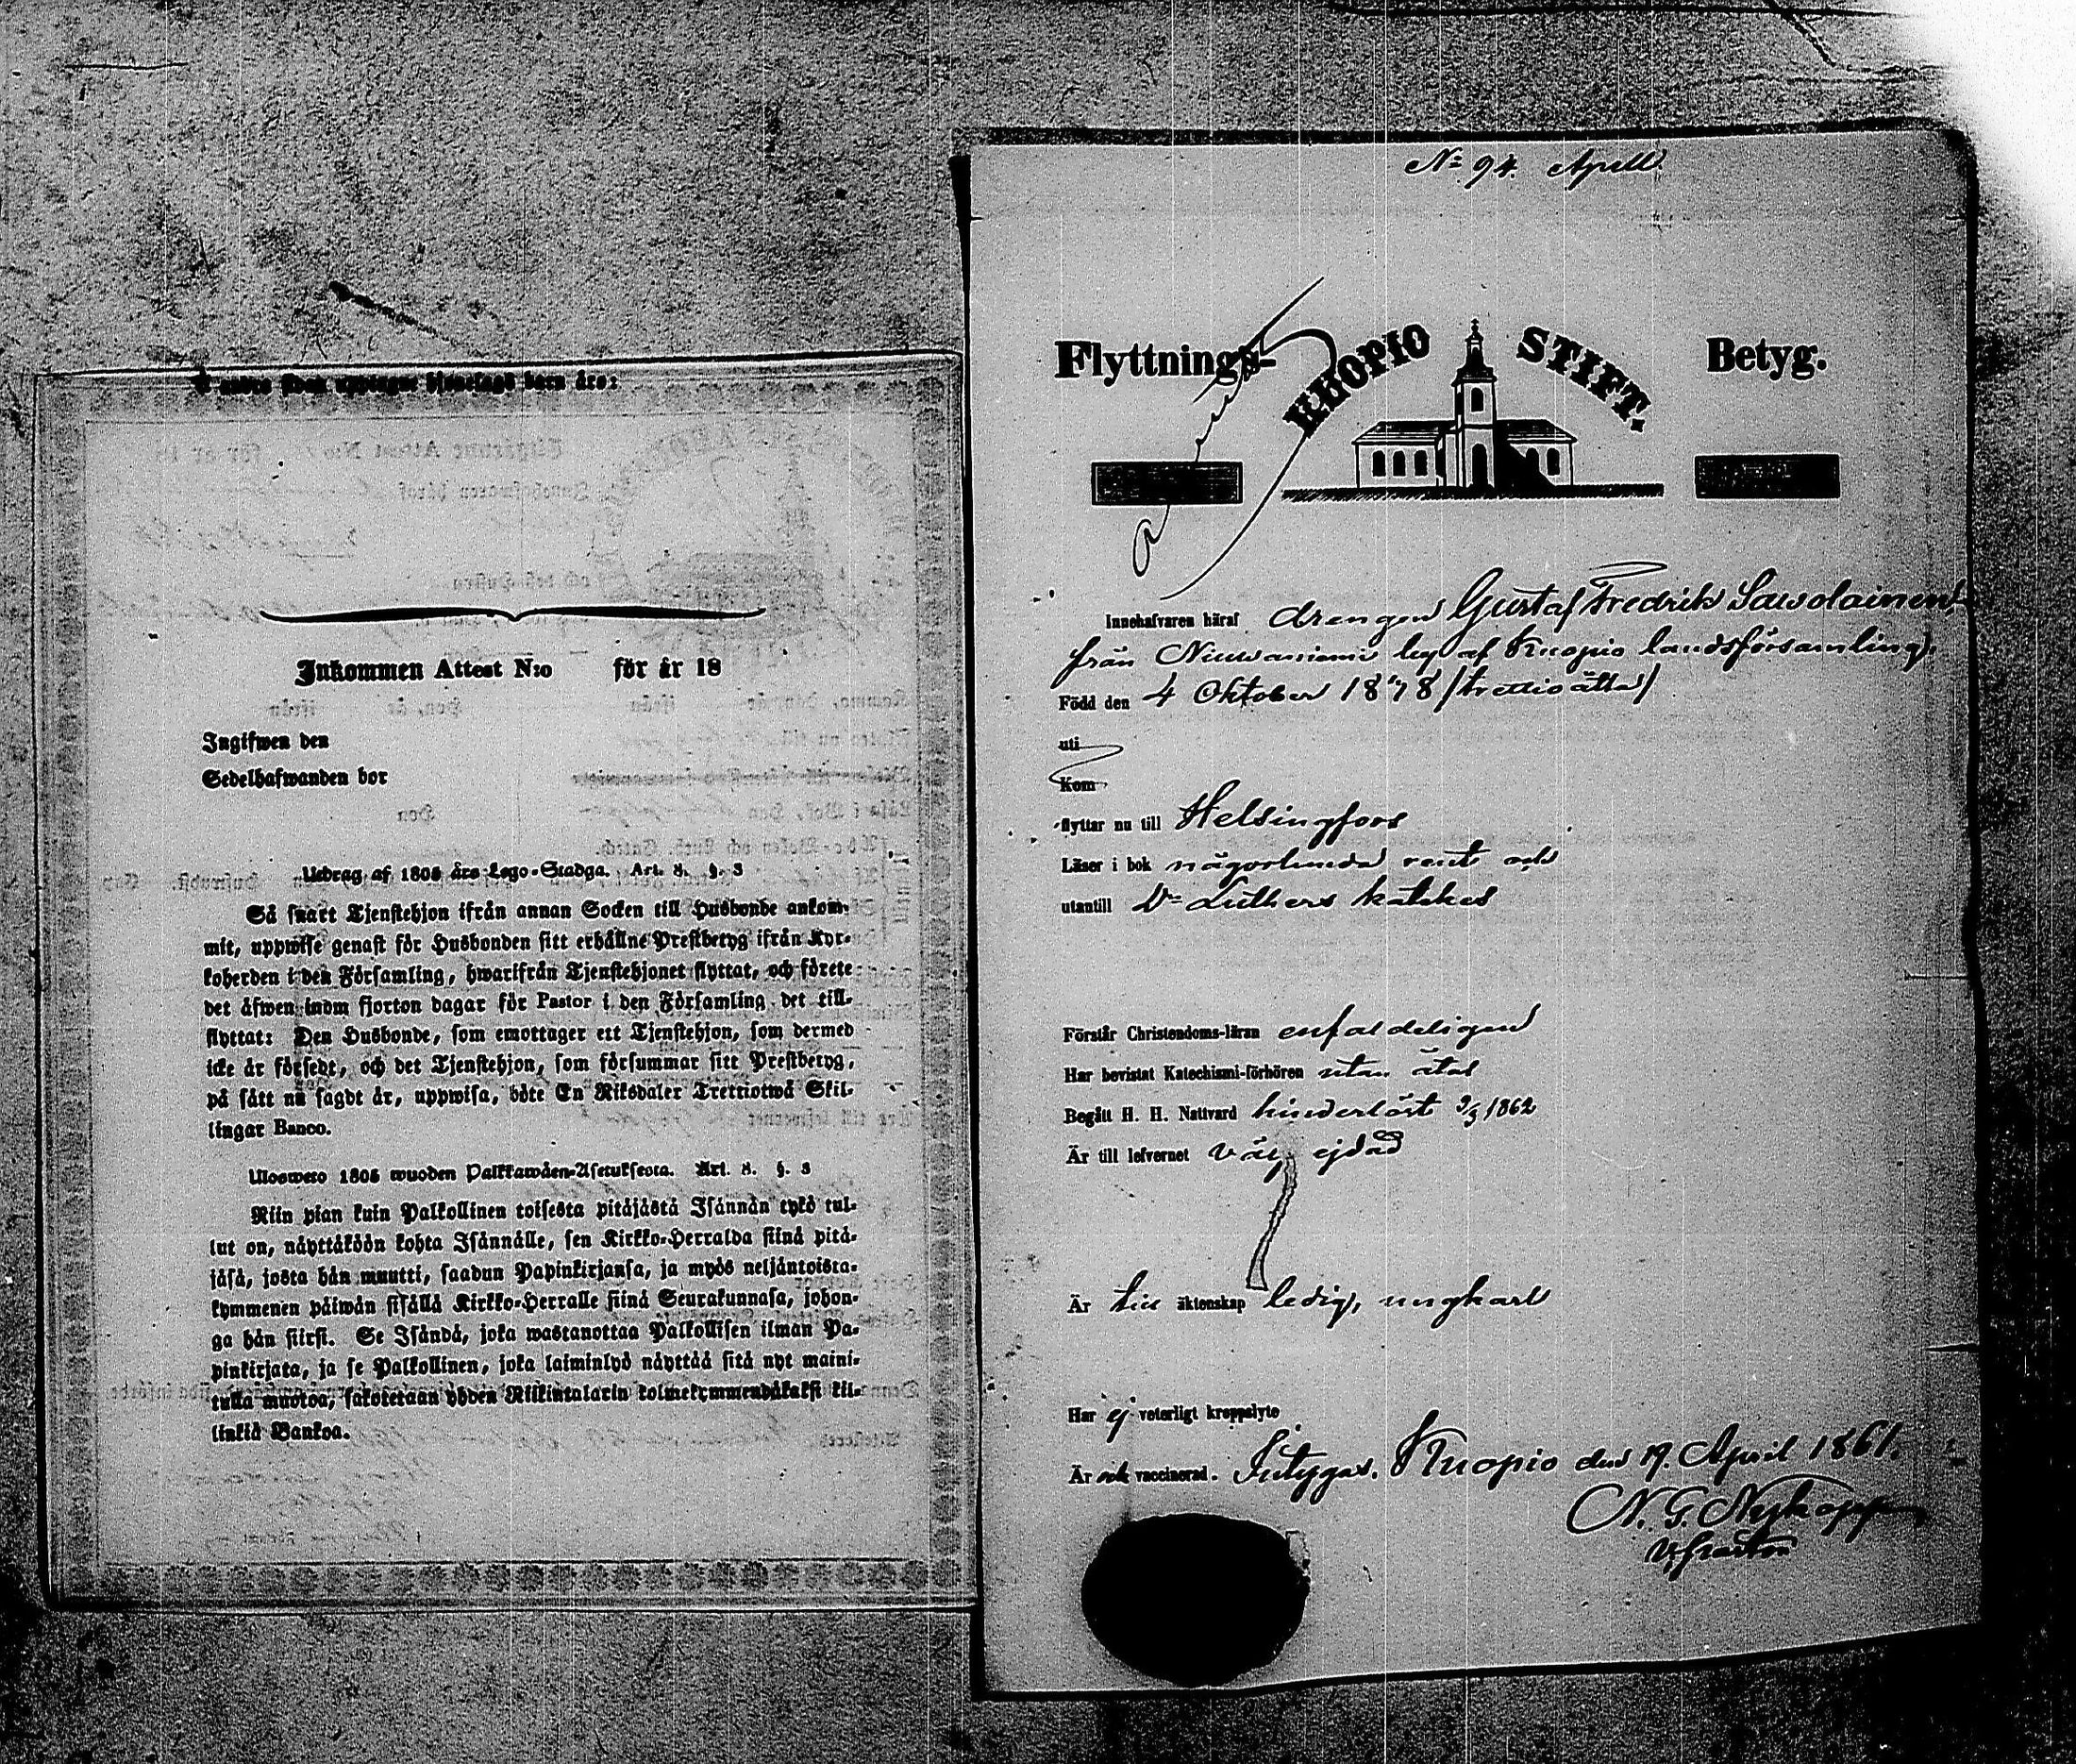 andra sidan upptagne hjonelags barn äro:
Inkommen Attest N:o för år 18
Ingifwen den
Sedelhafwanden bor
Utdrag af 1805 års Lego-Stadga. Art. 8. §. 3
Så snart Tjenstehjon ifrån annan Socken till Husbonde ankom-
mit, uppwise genast för Husbonden sitt erhållne Prestbetyg ifrån Kyr-
koherden i den Församling, hwarifrån Tjenstehjonet flyttat, och förete
det äfwen inom fjorton dagar för Pastor i den Församling det till-
flyttat: Den Husbonde, som emottager ett Tjenstehjon, som dermed
icke är försedt, och det Tjenstehjon, som försummar sitt Prestbetyg,
på sätt nu sagdt är, uppwisa, böte En Riksdaler Trettiotwå Skil-
lingar Banco.
Ulosweto 1805 wuoden Palkkawäen-Asetuksesta. Art. 8. §. 3
Niin pian kuin Palkollinen toisesta pitäjästä Isännän tykö tul-
lut on, näyttäköön kohta Isännälle, sen Kirkko-Herralda siinä pitä-
jäsä, josta hän muutti, saadun Papinkirjansa, ja myös neljäntoista-
kymmenen päiwän sisällä Kirkko-Herralle siinä Seurakunnasa, johon-
ga hän siirst. Se Isändä, joka wastanottaa Palkollisen ilman Pa-
pinkirjata, ja se Palkollinen, joka laiminlyö näyttää sitä nyt maini-
tulla muotoa, sakotetaan yhden Riikintalarin kolmekymmendäkaksi kil-
linkiä Bankoa.
N:o 94. April
Flyttnings- KUOPIO STIFT. Betyg.
Innehafvaren häraf drengen Gustaf Fredrik Sawolainen
från Niuwaniemi by af Kuopio landsförsamling,
Född den 4 Oktober 1838 /trettioåtta/
uti
Kom
flyttar nu till Helsingfors
Läser i bok någorlunda rent och
utantill D:r Luthers katekes
Förstår Christendoms-läran enfaldeligen
Har bevistat Katechismi-förhören utan åtal
Begått H. H. Nattvard hinderlöst 9/3 1862
Är till lefvernet väl ejdad
Är till äktenskap ledig, ungkarl
Har ej veterligt kroppslyte
Är och vaccinerad. Intygas. Kuopio den 19. April 1861.
N. G. Nykopp